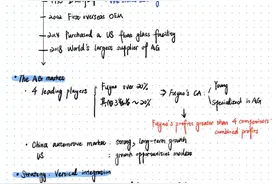 2012 First overseas OEM
2014 Purchased a US float glass facility
2018 World's largest supplier of AG
• The AG market
• 4 leading players
Fuyao over 20%
其他3家各~20%
⇒ Fuyao's CA:
Young
Specialized in AG
Fuyao's profits greater than 4 competitors' combined profits
• China automotive market: strong, long-term growth
US : growth opportunities modest
• Strategy: Vertical integration